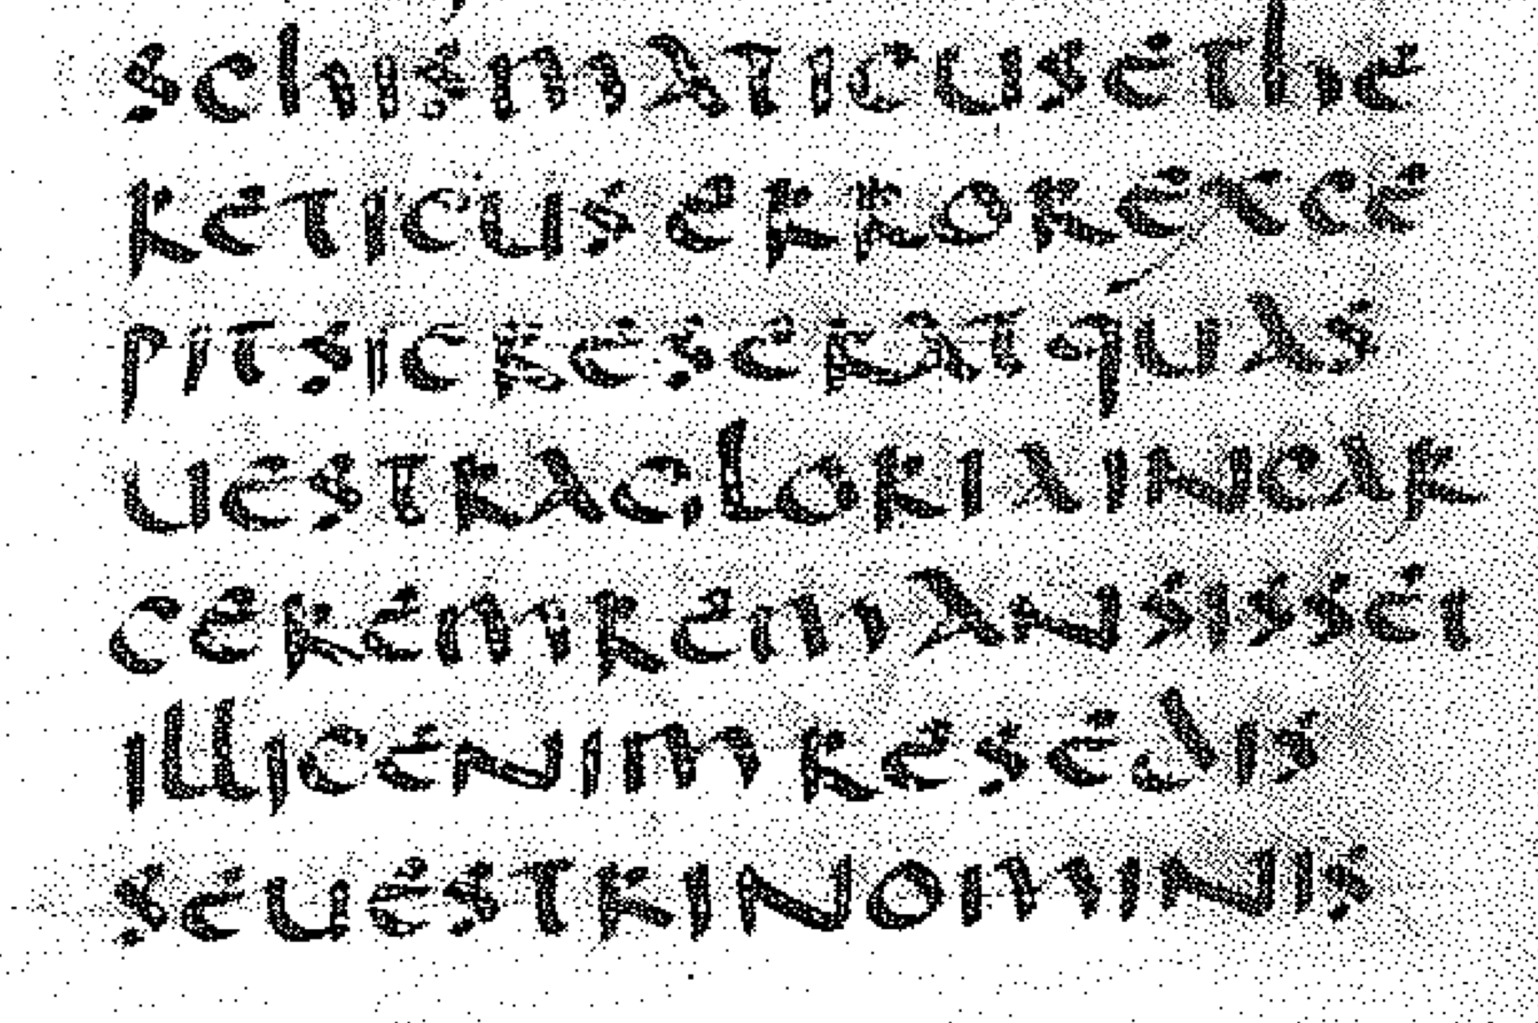 schismaticusethe
reticuserrorexce
pitsiceseseratquas
uestragloriaincar
ceremremansissei
illicenimresedis
seuestrinominis